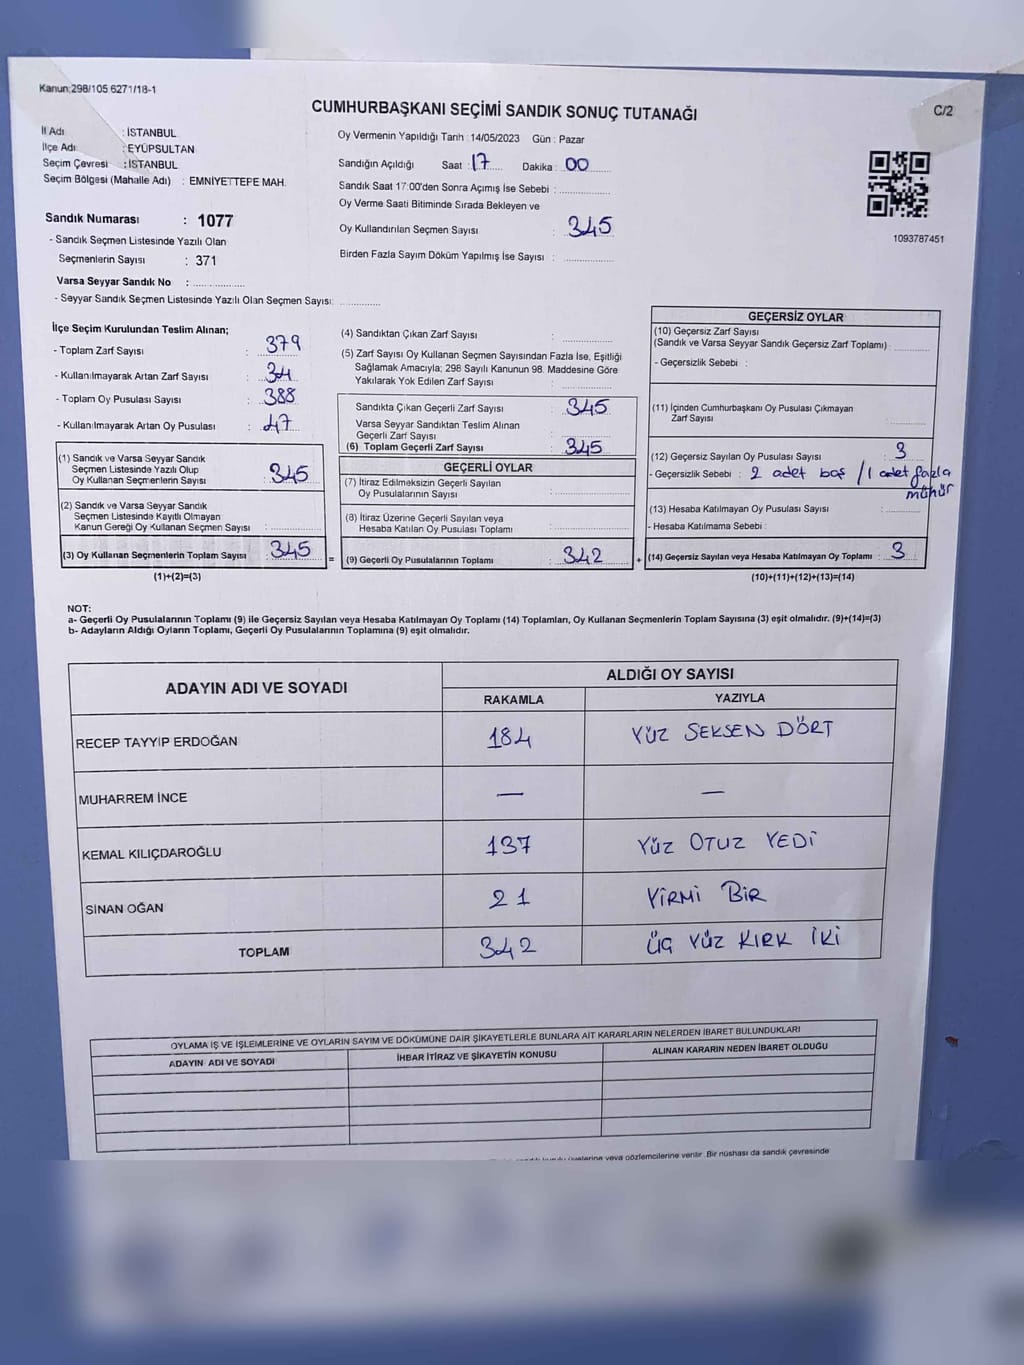 Kanun:298/105 6271/18-1
CUMHURBAŞKANI SEÇİMİ SANDIK SONUÇ TUTANAĞI
C/2
İl Adı : İSTANBUL
İlçe Adı : EYÜPSULTAN
Seçim Çevresi : İSTANBUL
Seçim Bölgesi (Mahalle Adı) : EMNİYETTEPE MAH.
Oy Vermenin Yapıldığı Tarih :14/05/2023 Gün : Pazar
Sandığın Açıldığı Saat : 17 Dakika : 00
Sandık Saat 17:00'den Sonra Açımış İse Sebebi :
Oy Verme Saati Bitiminde Sırada Bekleyen ve
Oy Kullandırılan Seçmen Sayısı : 345
Birden Fazla Sayım Döküm Yapılmış İse Sayısı :
1093787451
Sandık Numarası : 1077
- Sandık Seçmen Listesinde Yazılı Olan
Seçmenlerin Sayısı : 371
Varsa Seyyar Sandık No :
- Seyyar Sandık Seçmen Listesinde Yazılı Olan Seçmen Sayısı:
İlçe Seçim Kurulundan Teslim Alınan;
- Toplam Zarf Sayısı : 379
- Kullanılmayarak Artan Zarf Sayısı : 34
- Toplam Oy Pusulası Sayısı : 388
- Kullanılmayarak Artan Oy Pusulası : 47
(1) Sandık ve Varsa Seyyar Sandık
Seçmen Listesinde Yazılı Olup
Oy Kullanan Seçmenlerin Sayısı : 345
(2) Sandık ve Varsa Seyyar Sandık
Seçmen Listesinde Kayıtlı Olmayan
Kanun Gereği Oy Kullanan Seçmen Sayısı :
(3) Oy Kullanan Seçmenlerin Toplam Sayısı : 345
(1)+(2)=(3)
(4) Sandıktan Çıkan Zarf Sayısı :
(5) Zarf Sayısı Oy Kullanan Seçmen Sayısından Fazla İse, Eşitliği
Sağlamak Amacıyla; 298 Sayılı Kanunun 98. Maddesine Göre
Yakılarak Yok Edilen Zarf Sayısı :
Sandıkta Çıkan Geçerli Zarf Sayısı : 345
Varsa Seyyar Sandıktan Teslim Alınan
Geçerli Zarf Sayısı :
(6) Toplam Geçerli Zarf Sayısı : 345
GEÇERLİ OYLAR
(7) İtiraz Edilmeksizin Geçerli Sayılan
Oy Pusulalarının Sayısı :
(8) İtiraz Üzerine Geçerli Sayılan veya
Hesaba Katılan Oy Pusulası Toplamı :
= (9) Geçerli Oy Pusulalarının Toplamı : 342 +
GEÇERSİZ OYLAR
(10) Geçersiz Zarf Sayısı
(Sandık ve Varsa Seyyar Sandık Geçersiz Zarf Toplamı) :
- Geçersizlik Sebebi :
(11) İçinden Cumhurbaşkanı Oy Pusulası Çıkmayan
Zarf Sayısı :
(12) Geçersiz Sayılan Oy Pusulası Sayısı : 3
- Geçersizlik Sebebi : 2 adet boş / 1 adet fazla
mühür
(13) Hesaba Katılmayan Oy Pusulası Sayısı :
- Hesaba Katılmama Sebebi :
(14) Geçersiz Sayılan veya Hesaba Katılmayan Oy Toplamı : 3
(10)+(11)+(12)+(13)=(14)
NOT:
a- Geçerli Oy Pusulalarının Toplamı (9) ile Geçersiz Sayılan veya Hesaba Katılmayan Oy Toplamı (14) Toplamları, Oy Kullanan Seçmenlerin Toplam Sayısına (3) eşit olmalıdır. (9)+(14)=(3)
b- Adayların Aldığı Oyların Toplamı, Geçerli Oy Pusulalarının Toplamına (9) eşit olmalıdır.
ADAYIN ADI VE SOYADI
ALDIĞI OY SAYISI
RAKAMLA YAZIYLA
RECEP TAYYİP ERDOĞAN 184 YÜZ SEKSEN DÖRT
MUHARREM İNCE — —
KEMAL KILIÇDAROĞLU 137 YÜZ OTUZ YEDİ
SİNAN OĞAN 21 YİRMİ BİR
TOPLAM 342 ÜÇ YÜZ KIRK İKİ
OYLAMA İŞ VE İŞLEMLERİNE VE OYLARIN SAYIM VE DÖKÜMÜNE DAİR ŞİKAYETLERLE BUNLARA AİT KARARLARIN NELERDEN İBARET BULUNDUKLARI
ADAYIN ADI VE SOYADI İHBAR İTİRAZ VE ŞİKAYETİN KONUSU ALINAN KARARIN NEDEN İBARET OLDUĞU
üyelerine veya gözlemcilerine verilir. Bir nüshası da sandık çevresinde